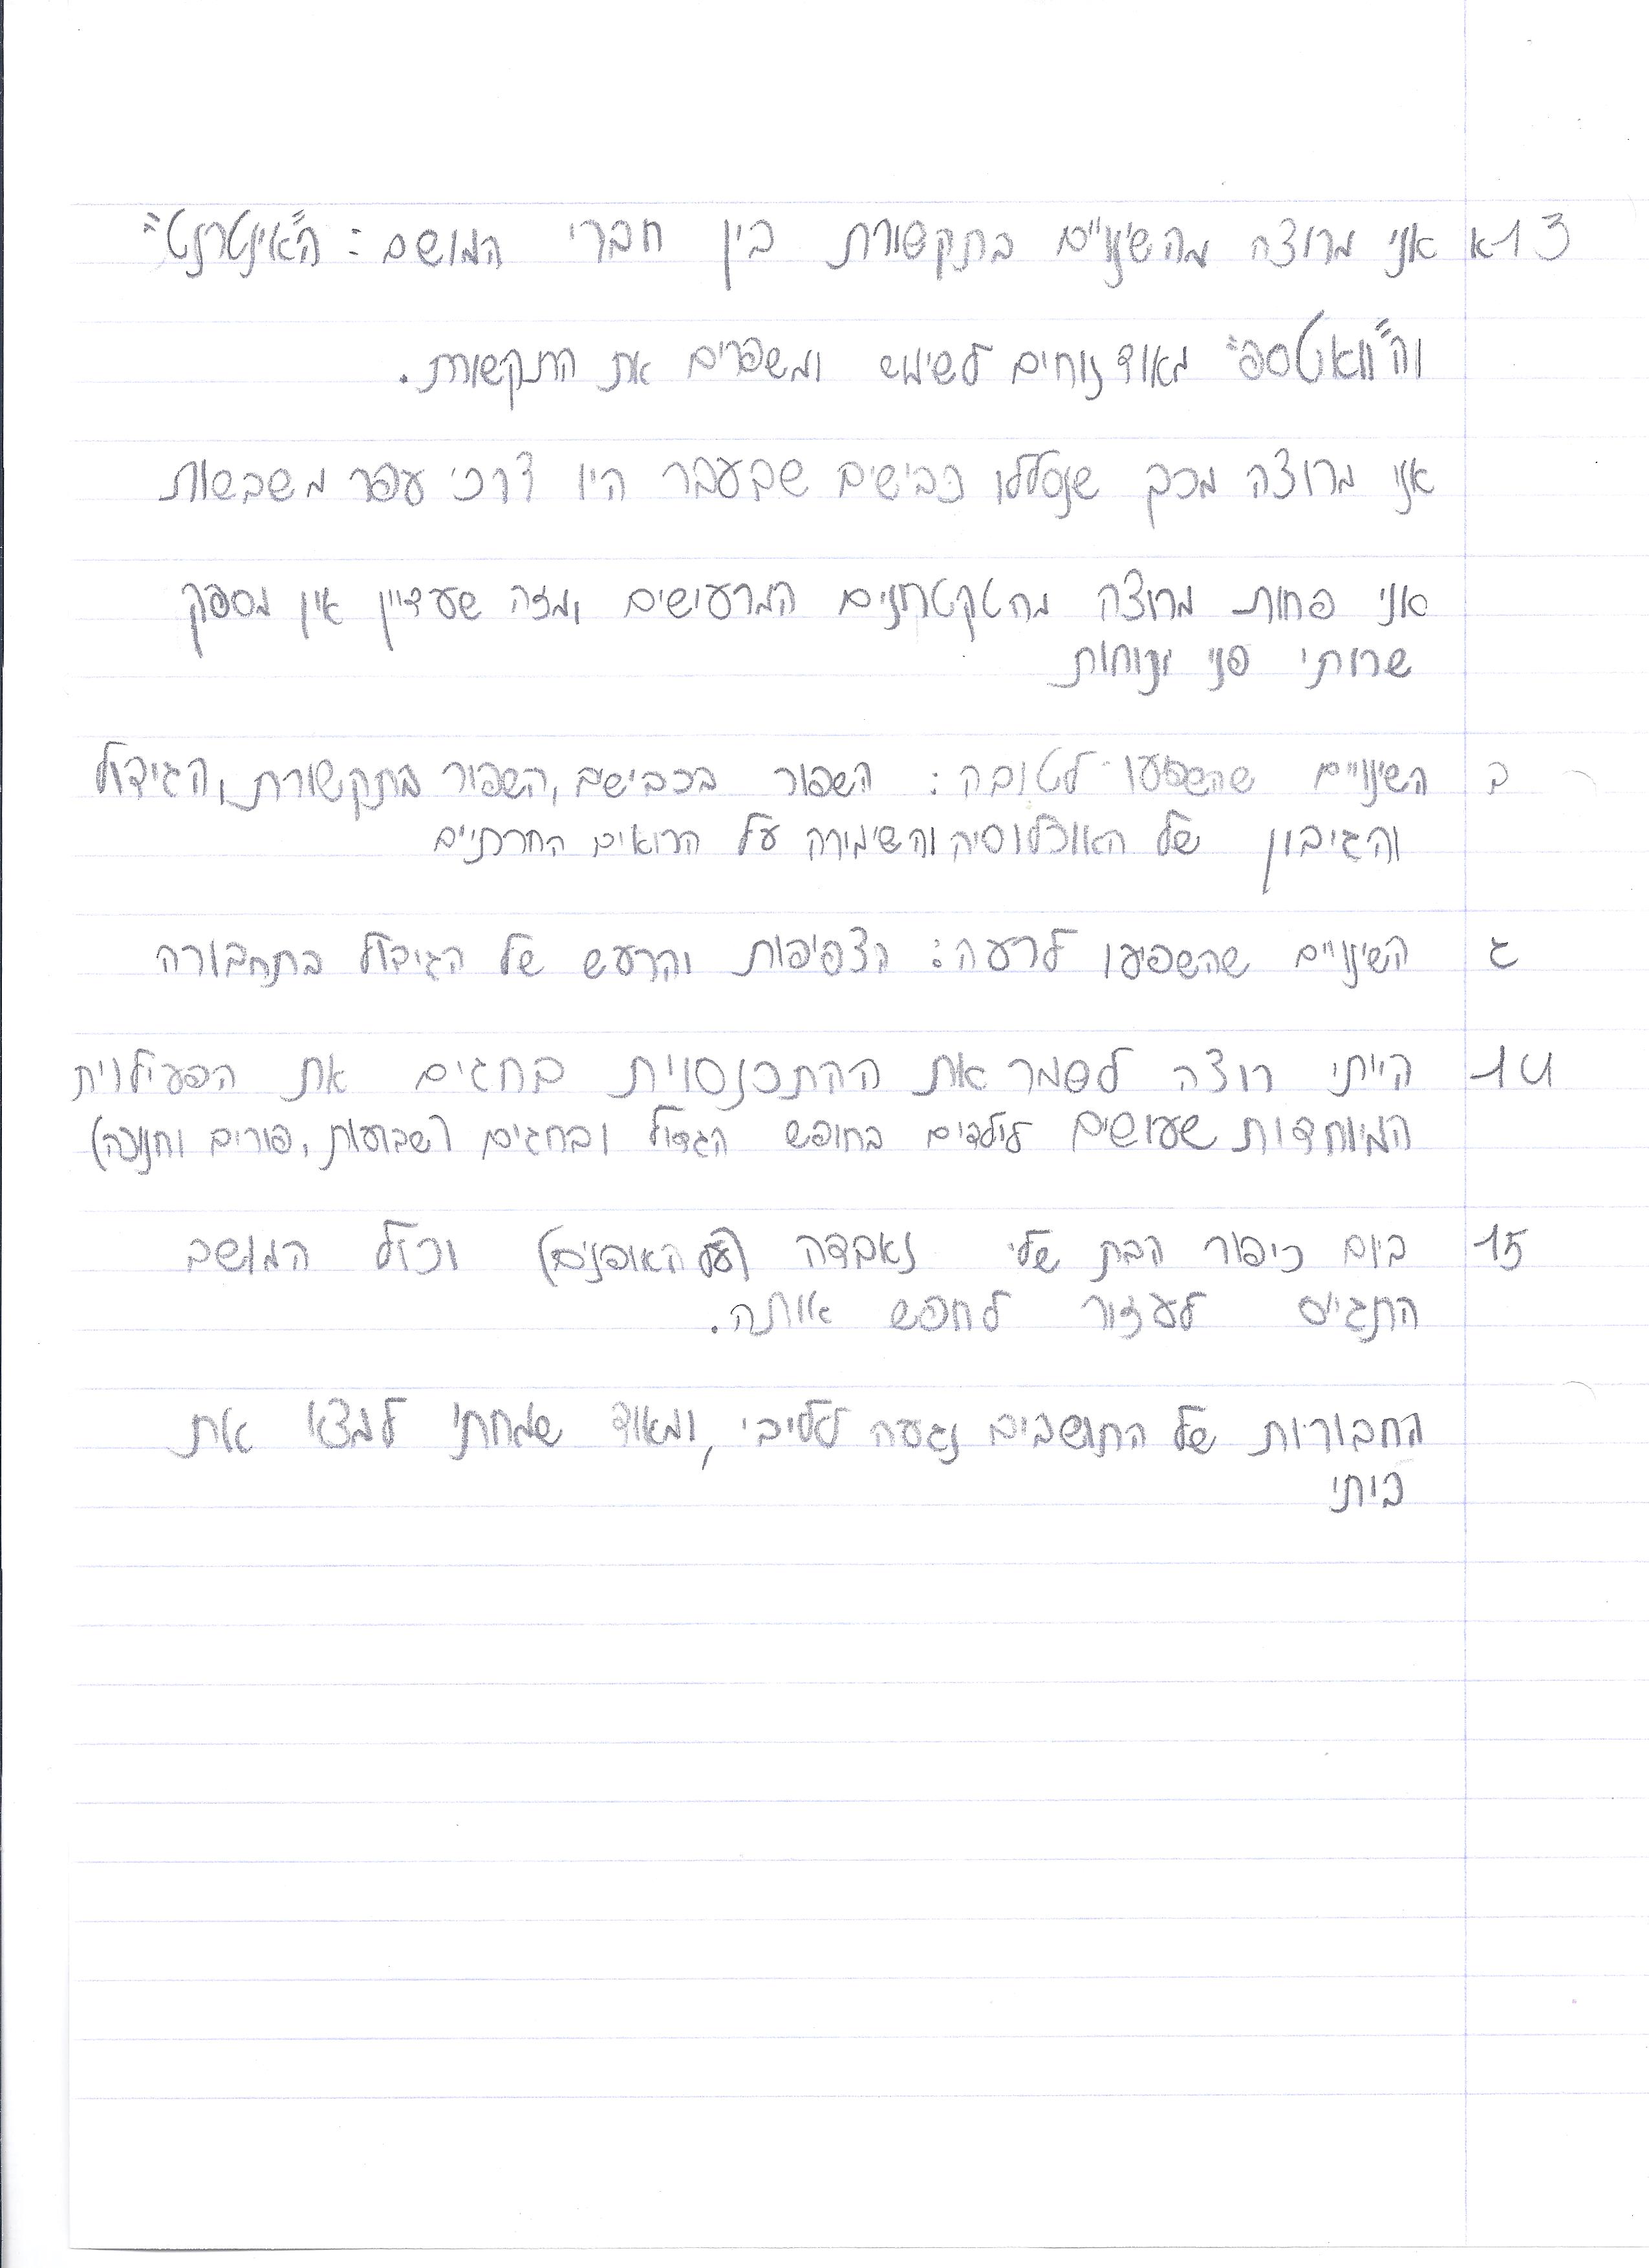 13א אני מרוצה מהשינויים בתקשורת בין חברי המושב: ה"אינטרנט"
וה"וואטספ" מאוד נוחים לשימוש ומשפרים את התקשורת.
אני מרוצה מכך שנסללו כבישים שבעבר היו דרכי עפר משבשות
אני פחות מרוצה מהטקטרונים המרעישים ,ומזה שעדיין אין מספק
שרותי פני ונוחות
ב השינויים שהשפיעו לטובה: השפור בכבישים, השפור בתקשורת, הגידול
והגיבון של האוכלוסיה והשימירה על הרואים החרתיים
ג השינויים שהשפיעו לרעה: הצפיפות והרעש של הגידול בתחבורה
14 הייתי רוצה לשמר את ההתכנסוית בחגים את הפעילוית
המיוחדות שעושים לילדים בחופש הגדול ובחגים (שבועות, פורים וחנוכה)
15 ביום כיפור הבת שלי נאבדה (עם האופנים) וכול המושב
התגייס לעזור לחפש אותה.
החבורות של התושבים נגעה לליבי, ומאוד שמחתי למצוא את
ביתי